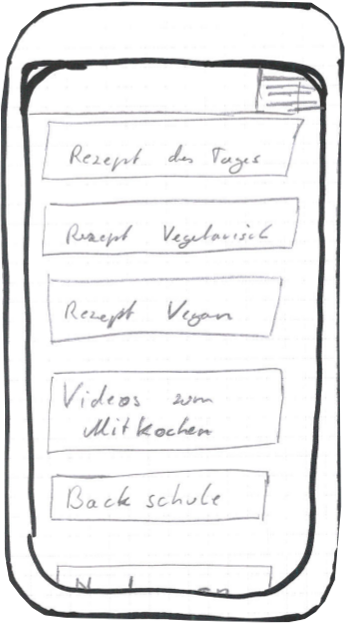 Rezept des Tages
Rezept Vegetarisch
Rezept Vegan
Videos zum
Mitkochen
Back schule